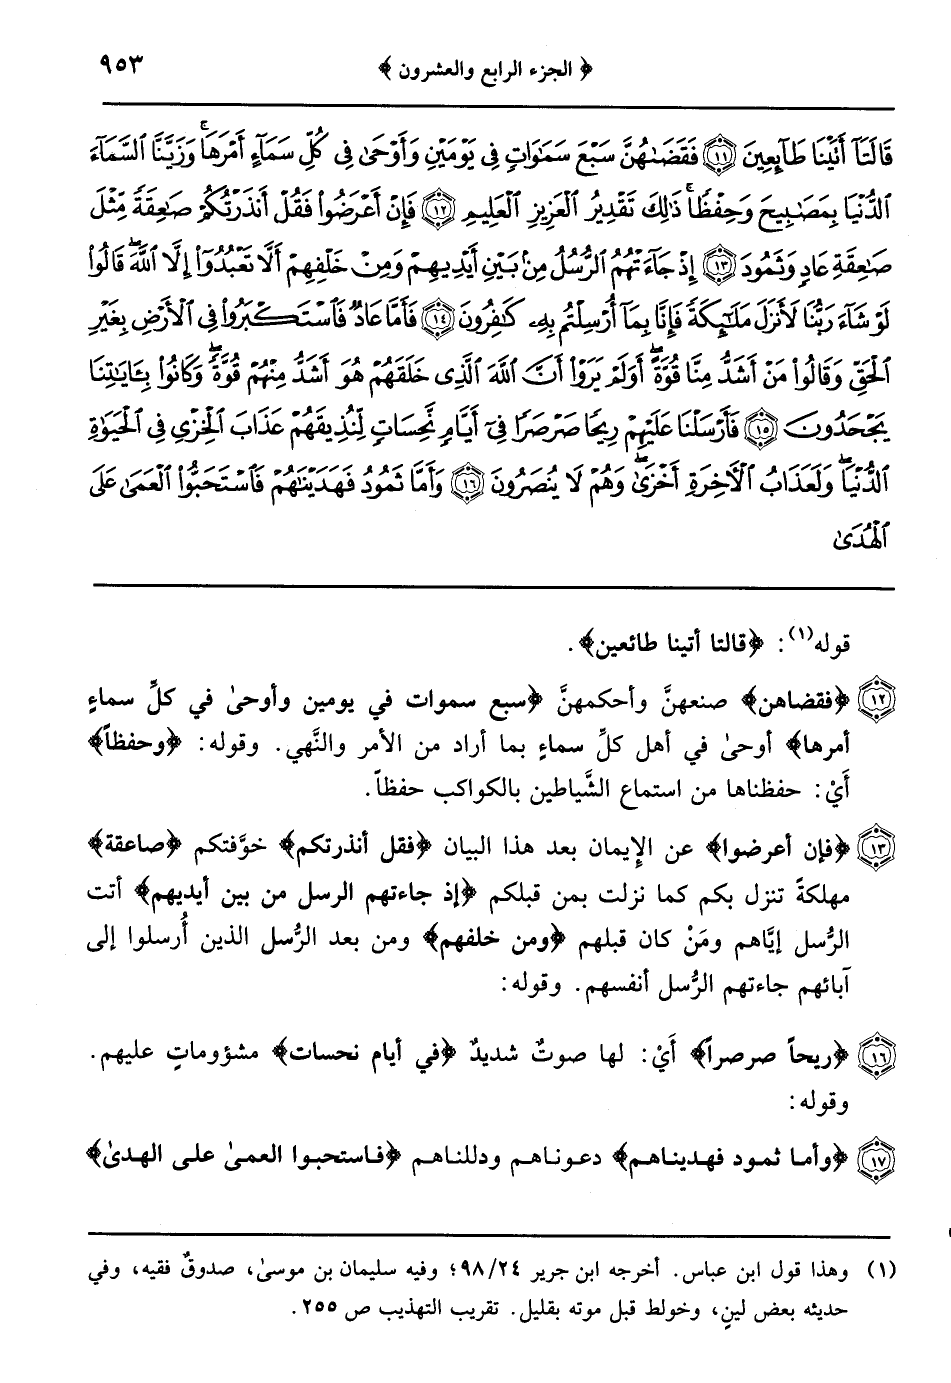 ٩٥٣ ﴿ الجزء الرابع والعشرون ﴾
قَالَتَآ أَتَيْنَا طَآئِعِينَ ١١ فَقَضَىٰهُنَّ سَبْعَ سَمَٰوَاتٍ فِى يَوْمَيْنِ وَأَوْحَىٰ فِى كُلِّ سَمَآءٍ أَمْرَهَا ۚ وَزَيَّنَّا ٱلسَّمَآءَ
ٱلدُّنْيَا بِمَصَٰبِيحَ وَحِفْظًا ۚ ذَٰلِكَ تَقْدِيرُ ٱلْعَزِيزِ ٱلْعَلِيمِ ١٢ فَإِنْ أَعْرَضُوا۟ فَقُلْ أَنذَرْتُكُمْ صَٰعِقَةً مِّثْلَ
صَٰعِقَةِ عَادٍ وَثَمُودَ ١٣ إِذْ جَآءَتْهُمُ ٱلرُّسُلُ مِنۢ بَيْنِ أَيْدِيهِمْ وَمِنْ خَلْفِهِمْ أَلَّا تَعْبُدُوٓا۟ إِلَّا ٱللَّهَ ۖ قَالُوا۟
لَوْ شَآءَ رَبُّنَا لَأَنزَلَ مَلَٰٓئِكَةً فَإِنَّا بِمَآ أُرْسِلْتُم بِهِۦ كَٰفِرُونَ ١٤ فَأَمَّا عَادٌ فَٱسْتَكْبَرُوا۟ فِى ٱلْأَرْضِ بِغَيْرِ
ٱلْحَقِّ وَقَالُوا۟ مَنْ أَشَدُّ مِنَّا قُوَّةً ۖ أَوَلَمْ يَرَوْا۟ أَنَّ ٱللَّهَ ٱلَّذِى خَلَقَهُمْ هُوَ أَشَدُّ مِنْهُمْ قُوَّةً ۖ وَكَانُوا۟ بِـَٔايَٰتِنَا
يَجْحَدُونَ ١٥ فَأَرْسَلْنَا عَلَيْهِمْ رِيحًا صَرْصَرًا فِىٓ أَيَّامٍ نَّحِسَاتٍ لِّنُذِيقَهُمْ عَذَابَ ٱلْخِزْىِ فِى ٱلْحَيَوٰةِ
ٱلدُّنْيَا ۖ وَلَعَذَابُ ٱلْـَٔاخِرَةِ أَخْزَىٰ ۖ وَهُمْ لَا يُنصَرُونَ ١٦ وَأَمَّا ثَمُودُ فَهَدَيْنَٰهُمْ فَٱسْتَحَبُّوا۟ ٱلْعَمَىٰ عَلَى
ٱلْهُدَىٰ
قوله(١): ﴿قالتا أتينا طائعين﴾.
١٢ ﴿فقضاهن﴾ صنعهنَّ وأحكمهنَّ ﴿سبع سموات في يومين وأوحىٰ في كلِّ سماءٍ
أمرها﴾ أوحىٰ في أهل كلِّ سماءٍ بما أراد من الأمر والنَّهي. وقوله: ﴿وحفظاً﴾
أَيْ: حفظناها من استماع الشَّياطين بالكواكب حفظاً.
١٣ ﴿فإن أعرضوا﴾ عن الإِيمان بعد هذا البيان ﴿فقل أنذرتكم﴾ خوَّفتكم ﴿صاعقة﴾
مهلكةً تنزل بكم كما نزلت بمن قبلكم ﴿إذ جاءتهم الرسل من بين أيديهم﴾ أتت
الرُّسل إيَّاهم ومَنْ كان قبلهم ﴿ومن خلفهم﴾ ومن بعد الرُّسل الذين أُرسلوا إلى
آبائهم جاءتهم الرُّسل أنفسهم. وقوله:
١٦ ﴿ريحاً صرصراً﴾ أَيْ: لها صوتٌ شديدٌ ﴿في أيام نحسات﴾ مشؤوماتٍ عليهم.
وقوله:
١٧ ﴿وأما ثمود فهديناهم﴾ دعوناهم ودللناهم ﴿فاستحبوا العمىٰ على الهدىٰ﴾
(١) وهذا قول ابن عباس. أخرجه ابن جرير ٩٨/٢٤؛ وفيه سليمان بن موسىٰ، صدوقٌ فقيه، وفي
حديثه بعض لينٍ، وخولط قبل موته بقليل. تقريب التهذيب ص ٢٥٥.